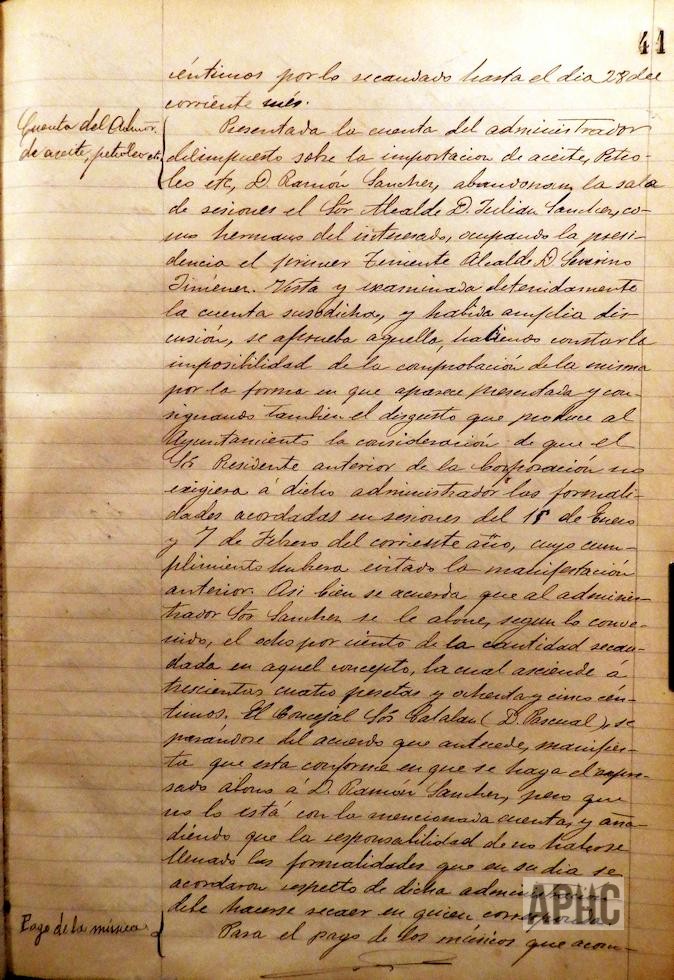 41
céntimos por lo recaudado hasta el dia 28 del
corriente més.
Cuenta del Admor.
de aceite, petroleo etc.
Presentada la cuenta del administrador
del impuesto sobre la importacion de aceite, Petro-
leo etc, D. Ramón Sanchez, abandonan la sala
de sesiones el Sor Alcalde D. Julian Sanchez, co-
mo hermano del interesado, ocupando la presi-
dencia el primer Teniente Alcalde D. Severino
Jiménez. Vista y examinada detenidamente
la cuenta susodicha, y habida amplia dis-
cusión, se aprueba aquella, haciendo constar la
imposibilidad de la comprobación de la misma
por la forma en que aparece presentada y con-
signando tambien el disgusto que produce al
Ayuntamiento la consideración de que el
Sor Presidente anterior de la Corporación no
exigiera á dicho administrador las formali-
dades acordadas en sesiones del 15 de Enero
y 7 de Febrero del corriente año, cuyo cum-
plimiento hubiera evitado la manifestación
anterior. Asi bien se acuerda que al adminis-
trador Sor Sanchez se le abone, segun lo conve-
nido, el ocho por ciento de la cantidad recau-
dada en aquel concepto, la cual asciende á
trescientas cuatro pesetas y ochenta y cinco cén-
timos. El Concejal Sor Catalan (D. Pascual), se
parándose del acuerdo que antecede, manifies-
ta que esta conforme en que se haga el expre-
sado abono á D. Ramón Sanchez, pero que
no lo está con la mencionada cuenta, y aña-
diendo que la responsabilidad de no haberse
llenado las formalidades que en su dia se
acordaron respecto de dicha administración
debe hacerse recaer en quien corresponda.
Pago de la música
Para el pago de los músicos que acom-
APHC